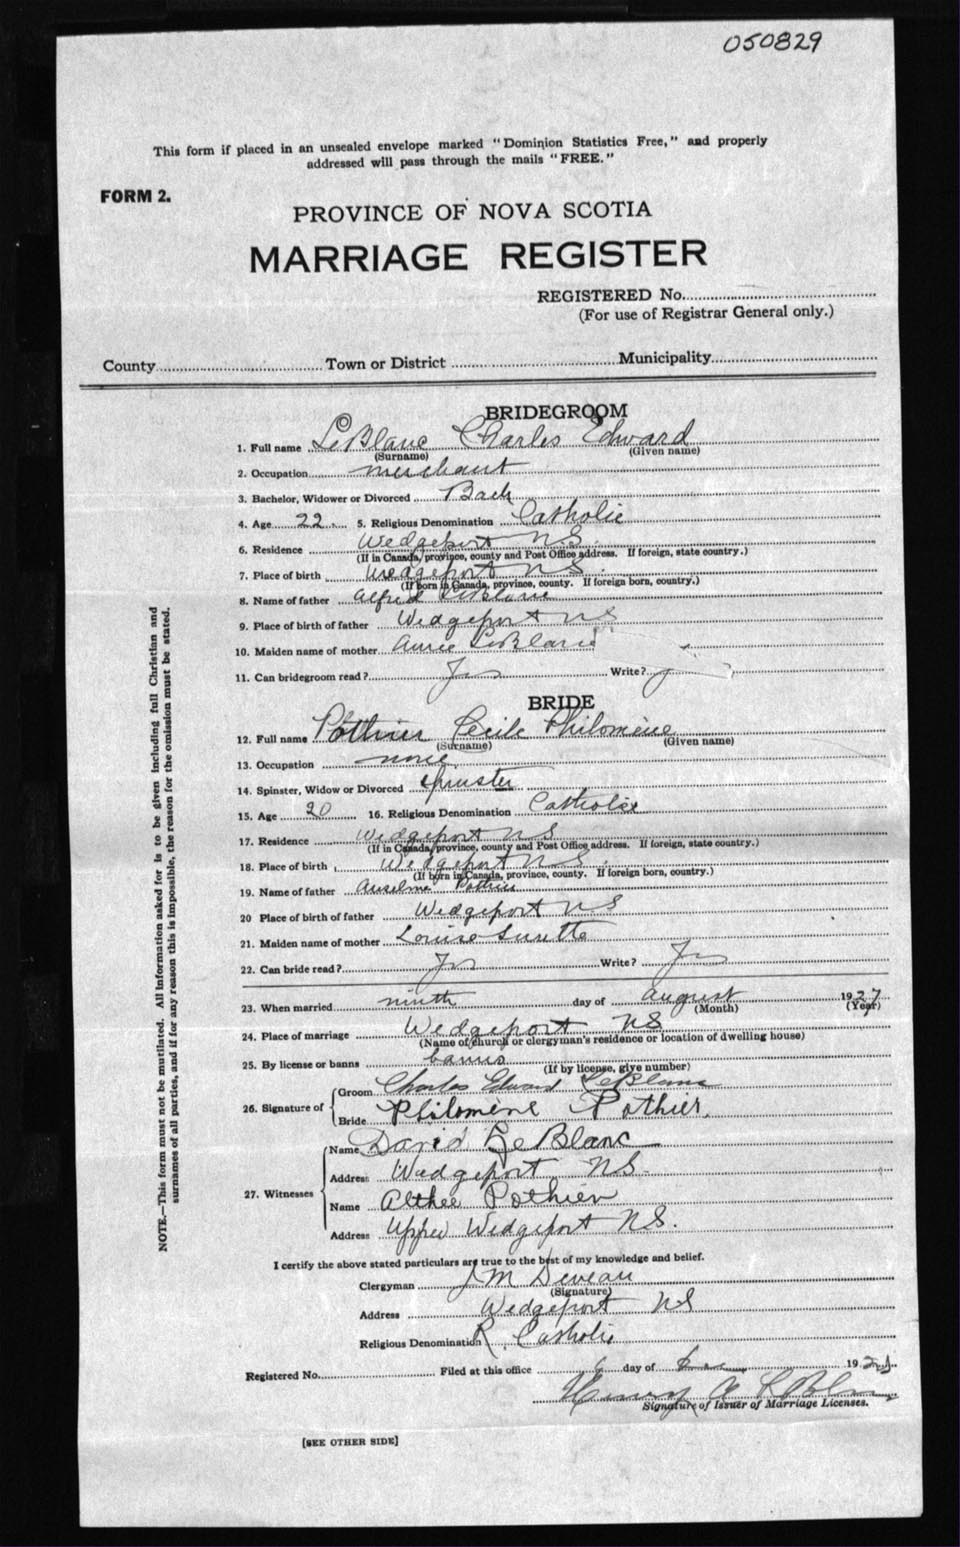 050829
This form if placed in an unsealed envelope marked "Dominion Statistics Free," and properly
addressed will pass through the mails "FREE."
FORM 2.
PROVINCE OF NOVA SCOTIA
MARRIAGE REGISTER
REGISTERED No.
(For use of Registrar General only.)
County Town or District Municipality
BRIDEGROOM
1. Full name LeBlanc Charles Edward
(Surname) (Given name)
2. Occupation merchant
3. Bachelor, Widower or Divorced Bach
4. Age 22 5. Religious Denomination Catholic
6. Residence Wedgeport N.S.
(If in Canada, province, county and Post Office address. If foreign, state country.)
7. Place of birth Wedgeport N S
(If born in Canada, province, county. If foreign born, country.)
8. Name of father Alfred LeBlanc
9. Place of birth of father Wedgeport N S
10. Maiden name of mother Annie LeBlanc
11. Can bridegroom read? Yes Write? y
BRIDE
12. Full name Pothier Cecile Philomène
(Surname) (Given name)
13. Occupation none
14. Spinster, Widow or Divorced Spinster
15. Age 20 16. Religious Denomination Catholic
17. Residence Wedgeport N S
(If in Canada, province, county and Post Office address. If foreign, state country.)
18. Place of birth Wedgeport N S
(If born in Canada, province, county. If foreign born, country.)
19. Name of father Anselme Pothier
20 Place of birth of father Wedgeport N S
21. Maiden name of mother Louise Surette
22. Can bride read? Yes Write? Yes
23. When married ninth day of August 1927
(Month) (Year)
24. Place of marriage Wedgeport N S
(Name of church or clergyman's residence or location of dwelling house)
25. By license or banns banns
(If by license, give number)
26. Signature of
Groom Charles Edward LeBlanc
Bride Philomène Pothier.
27. Witnesses
Name David LeBlanc
Address Wedgeport NS.
Name Althée Pothier
Address Upper Wedgeport N.S.
I certify the above stated particulars are true to the best of my knowledge and belief.
Clergyman J M Deveau
(Signature)
Address Wedgeport N S
Religious Denomination R. Catholic
Registered No. Filed at this office 6 day of 192
Henry A LeBlanc
Signature of Issuer of Marriage Licenses.
[SEE OTHER SIDE]
NOTE.—This form must not be mutilated. All information asked for is to be given including full Christian and
surnames of all parties, and if for any reason this is impossible, the reason for the omission must be stated.